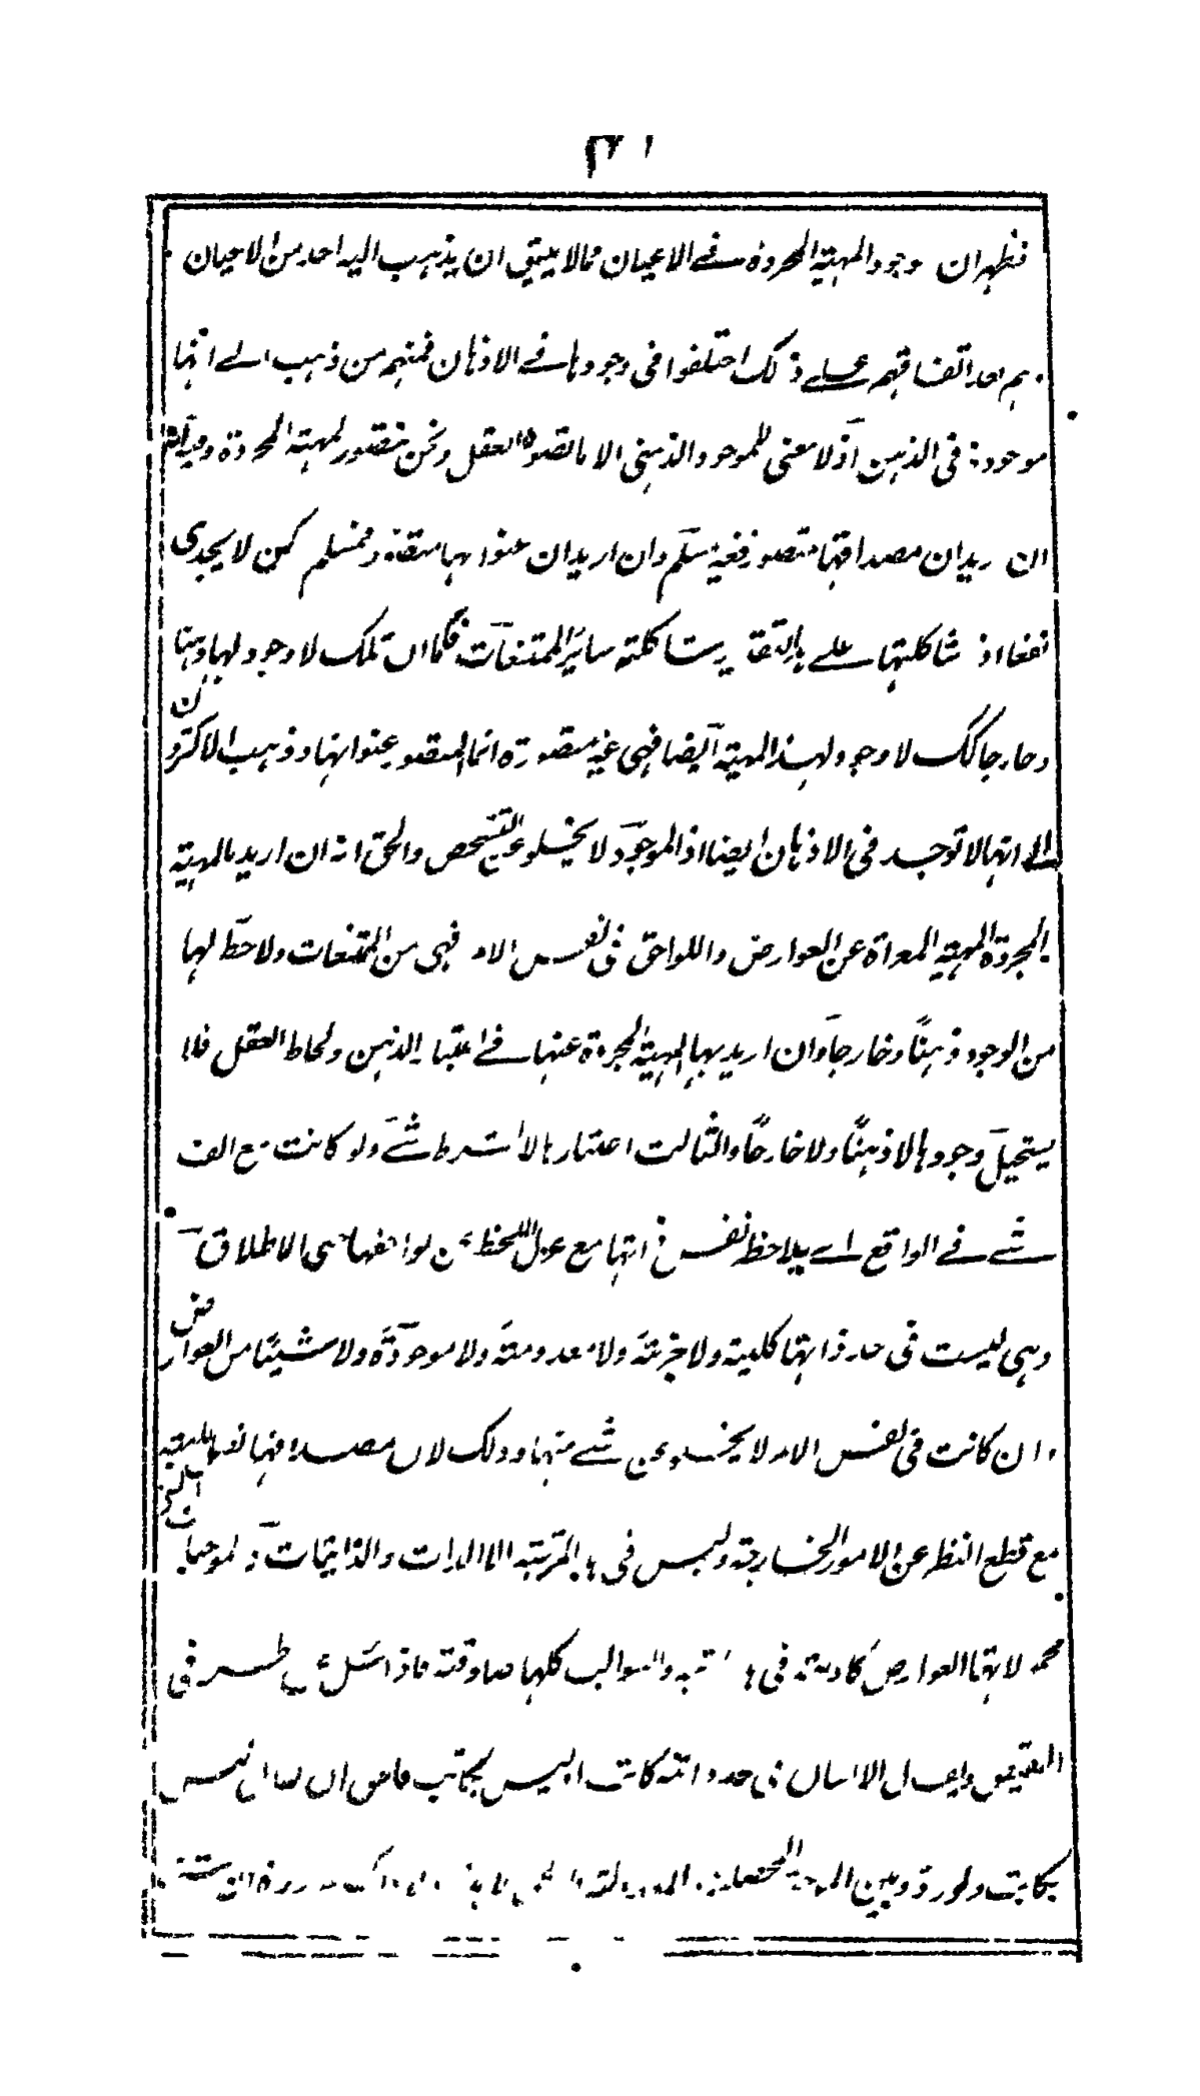 فظهر ان وجود المهية المجردة في الاعيان مما لا ينبغي ان يذهب اليه احد من الاعيان
ثم بعد اتفاقهم على ذلك اختلفوا في وجودها في الاذهان فمنهم من ذهب الى انها
موجودة في الذهن اذ لا معنى للموجود الذهني الا ما تصوره العقل ونحن نتصور المهية المجردة وفيه انه
ان اريد ان مصداقها متصور فغير مسلم وان اريد ان عنوانها متصور فمسلم لكن لا يجدي
نفعا اذ شاكلتها على هذا التقدير شاكلة سائر الممتنعات فكما ان تلك لا وجود لها ذهنا
وخارجا كذلك لا وجود لهذه المهية ايضا فهي غير متصورة انما المتصور عنوانها وذهب الاكثرون
الى انها لا توجد في الاذهان ايضا اذ الموجود لا يخلو عن التشخص والحق انه ان اريد بالمهية
المجردة المهية المعراة عن العوارض واللواحق في نفس الامر فهي من الممتنعات ولا حظ لها
من الوجود ذهنا وخارجا وان اريد بها المهية المجردة عنها في اعتبار الذهن ولحاظ العقل فلا
يستحيل وجودها لا ذهنا ولا خارجا والثالث اعتبارها لا بشرط شئ ولو كانت مع الف
شئ في الواقع اي يلاحظ نفس ذاتها مع عزل اللحظ عن لواحقها هي الاطلاق
وهي ليست في حد ذاتها كلية ولا جزئية ولا معدومة ولا موجودة ولا شيئا من العوارض
وان كانت في نفس الامر لا يخلو عن شئ منها وذلك لان مصداقها نفس المهية
مع قطع النظر عن الامور الخارجة وليس في هذه المرتبة الا الذات والذاتيات والموجبات التي
محمولاتها العوارض كاذبة في هذه المرتبة والسوالب كلها صادقة فاذا سئل عن طرفي
النقيض وليس الانسان في حد ذاته كاتب او ليس بكاتب
بكاتب وبين الموجبة المعدولة